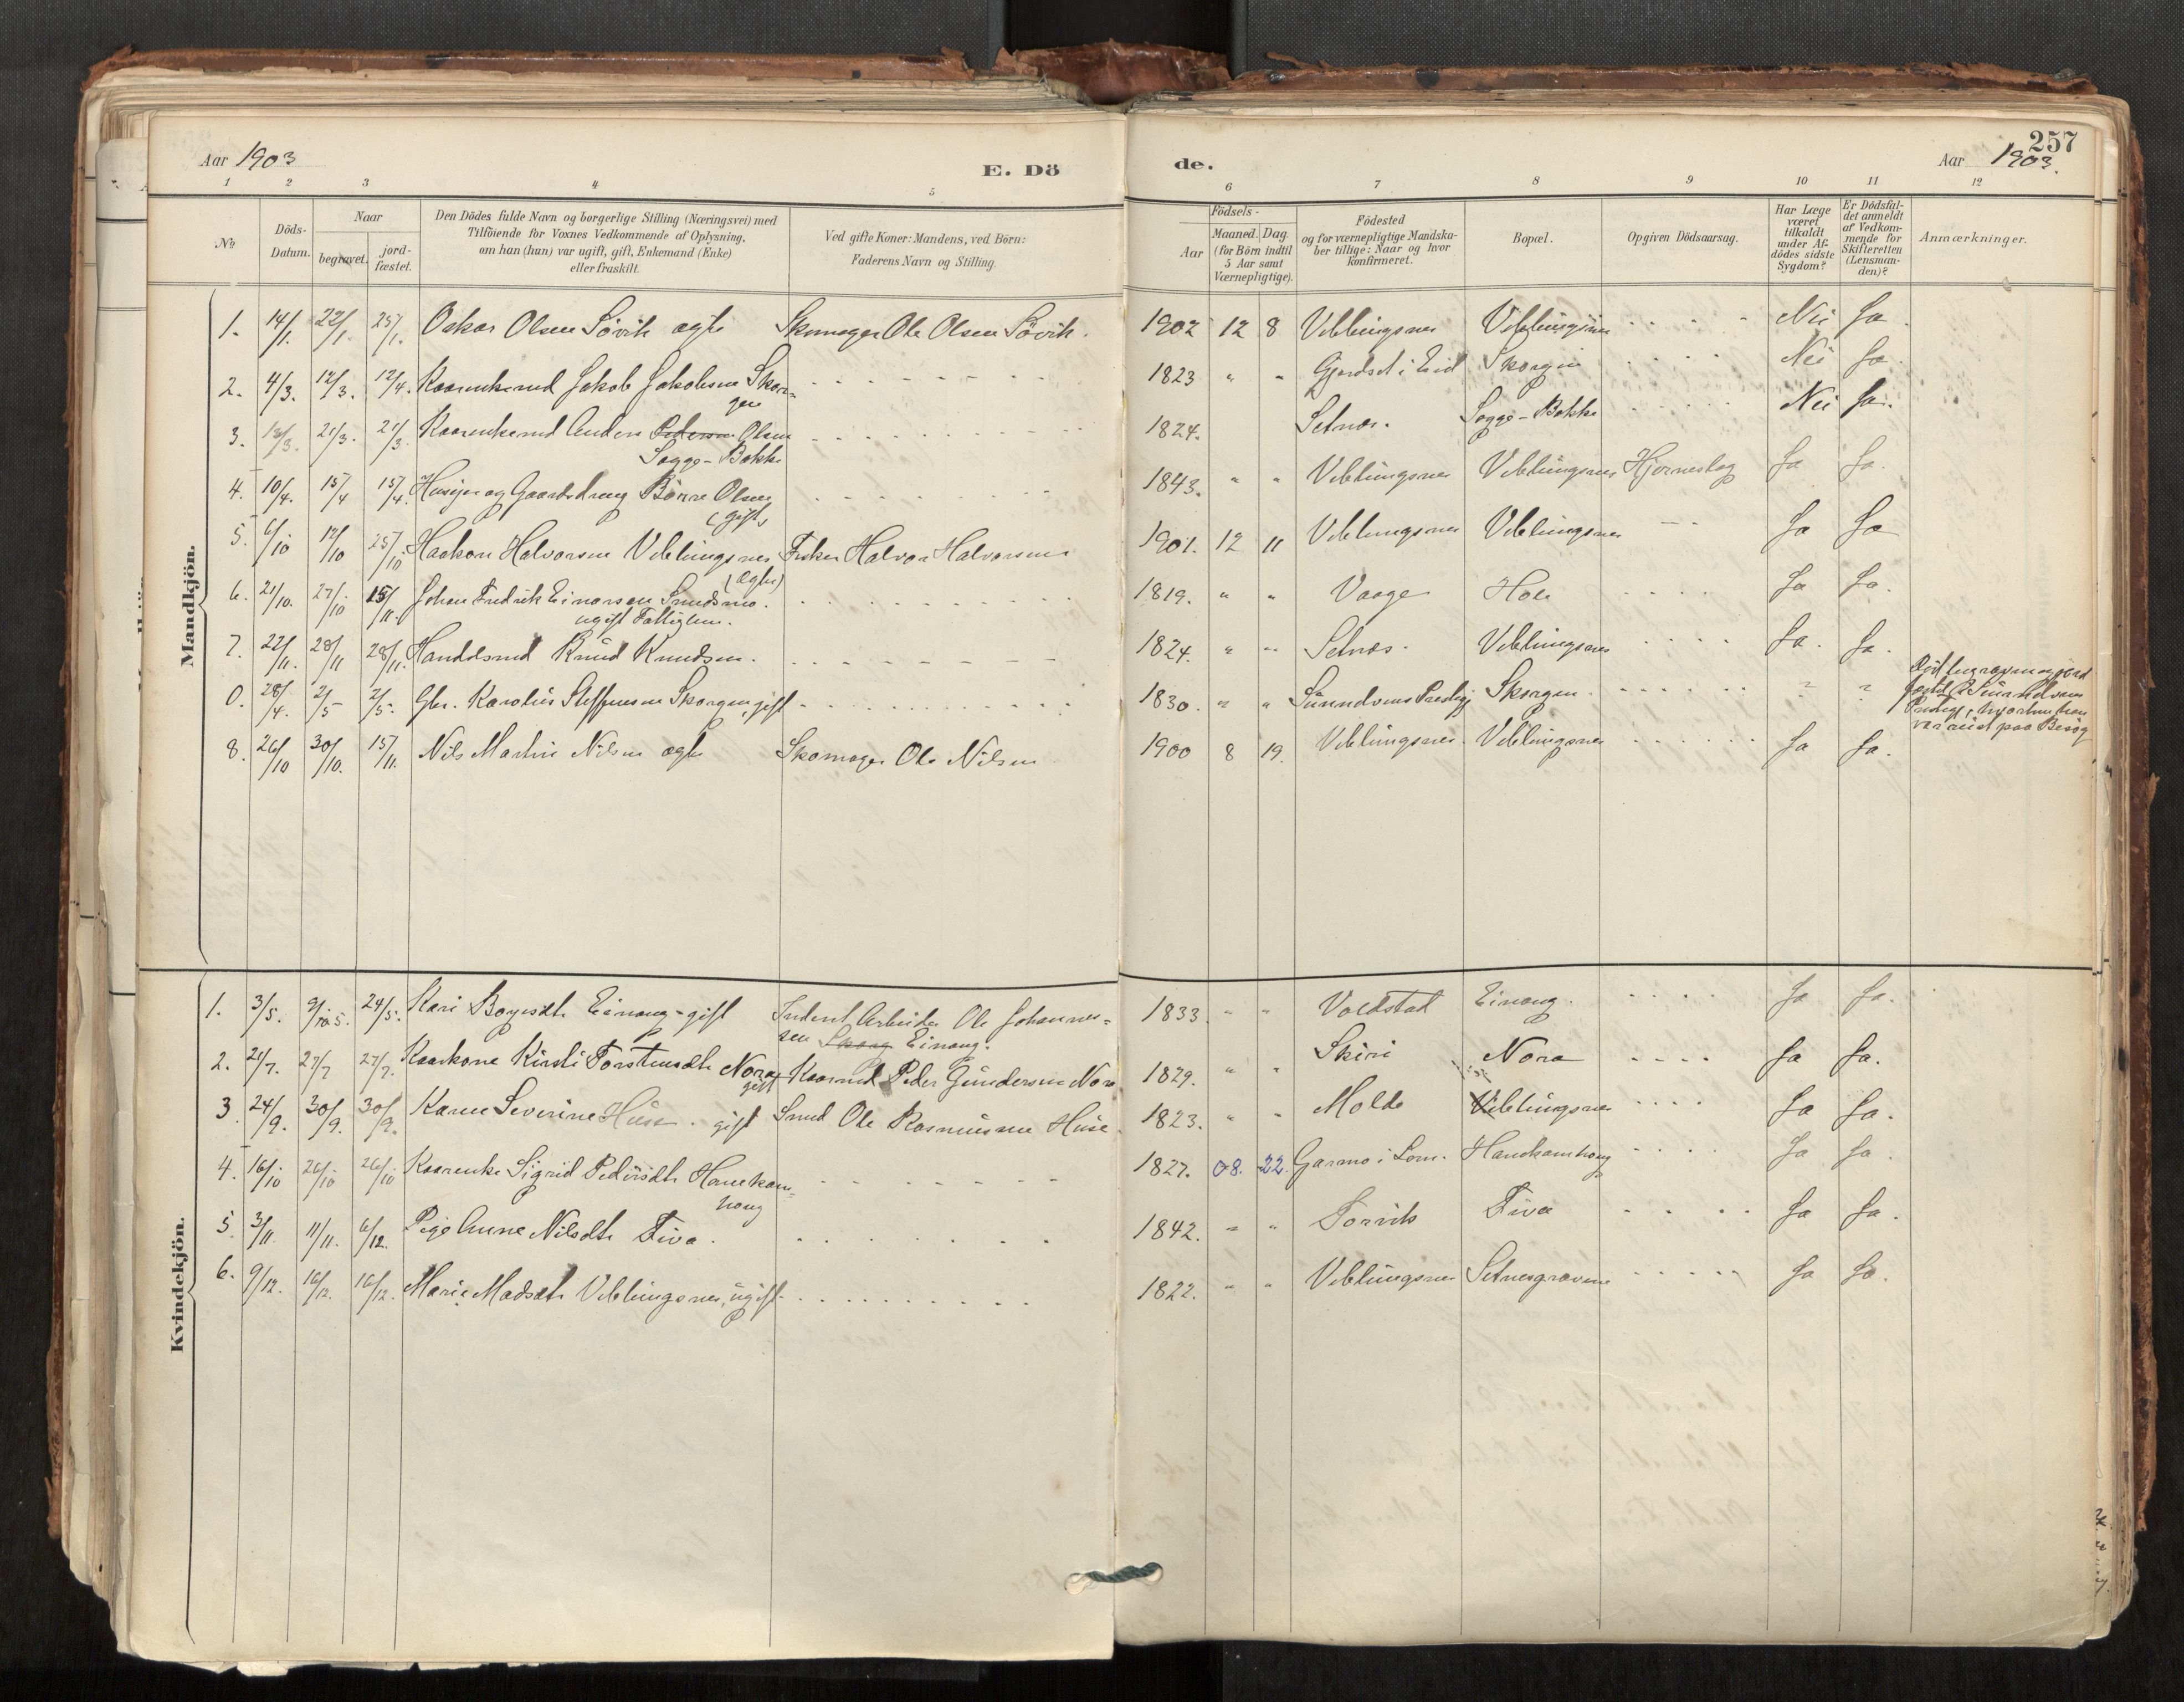 257
Aar 1903
E. Dö
de.
Aar 1903.
1 2 3 4 5 6 7 8 9 10 11 12
No
Döds-Datum.
Naar
begravet.
jord-fæstet.
Den Dödes fulde Navn og borgerlige Stilling (Næringsvei) med
Tilföiende for Voxnes Vedkommende af Oplysning,
om han (hun) var ugift, gift, Enkemand (Enke)
eller fraskilt.
Ved gifte Koner: Mandens, ved Börn:
Faderens Navn og Stilling.
Födsels-
Aar
Maaned. Dag
(for Börn indtil
5 Aar samt
Værnepligtige).
Födested
og for værnepligtige Mandska-
ber tillige: Naar og hvor
konfirmeret.
Bopæl.
Opgiven Dödsaarsag.
Har Læge
været
tilkaldt
under Af-
dödes sidste
Sygdom?
Er Dödsfal-
det anmeldt
af Vedkom-
mende for
Skifteretten
(Lensman-
den)?
Anmærkninger.
Mandkjön.
1. 14/1. 22/1. 25/1. Oskar Olsen Sövik ægte Skomager Ole Olsen Sövik. 1902 12 8 Veblungsnes Veblungsnes Nei Ja.
2. 4/3. 12/3. 12/4. Kaarenkemd Jakob Jakobsen Skor-
gen 1823 " " Gjerdset i Eid Skorgen Nei Ja
3. 13/3. 21/3. 21/3 Kaarenkemd Anders Pedersen Olsen
Sogge-Bakke 1824. Setnes. Sogge-Bakke Nei Ja.
4. 10/4. 15/4 15/4. Huseier og Gaardsdreng Börre Olsen
(gift) 1843. " " Veblungsnes Veblungsnes Hjerneslag Ja Ja.
5. 6/10 12/10 25/10 Haakon Halvorsen Veblungsnes
(ægte) Fisker Halvor Halvorsen 1901. 12 11 Veblungsnes Veblungsnes Ja Ja
6. 21/10. 27/10 15/11. Johan Fredrik Einarsen Smedsmo.
ugift Fattiglem. 1819. " " Vaage Hole Ja Ja.
7. 22/11. 28/11 28/11. Handelsmd Knud Knudsen. 1824. " " Setnes. Veblungsnes Ja. Ja.
0. 28/4. 2/5 2/5. Gbr. Karolus Steffensen Skorgen, gift 1830. " " Sunndvens Prestegj Skorgen
Död begraven og jord
fæstet i Sunndvens
Prestegj, hvorhen han
var reist paa Besög
8. 26/10 30/10. 15/11. Nils Martin Nilsen ægte Skomager Ole Nilsen 1900 8 19. Veblungsnes. Veblungsnes Ja Ja.
Kvindekjön.
1. 3/5. 9/5. 24/5. Kari Boyesdtr Einang gift Arbeider Ole Johannes-
sen Skorg Einang. 1833. " " Voldstad Einang. Ja Ja.
2. 21/7. 27/7 27/7. Kaarkone Kirsti Torstensdtr Nora
gift Kaarmd Peder Gundersen Nora 1829. " " Skiri Nora Ja Ja.
3 24/9. 30/9. 30/9. Karen Severine Huse. gift Smed Ole Rasmussen Huse. 1823. " " Molde Veblungsnes Ja Ja.
4. 16/10 26/10 26/10 Kaarenke Sigrid Pedersdtr Hanekam-
haug 1827. 08. 22. Garmo i Lom. Hanekamhaug Ja Ja.
5. 3/11. 11/11. 6/12. Pige Anne Nilsdtr Tiva. 1842. " " Torvik Tiva Ja Ja.
6. 9/12. 16/12. 16/12. Marie Madsdtr Veblungsnes, ugift 1822. " " Veblungsnes Setnesgravene Ja Ja.